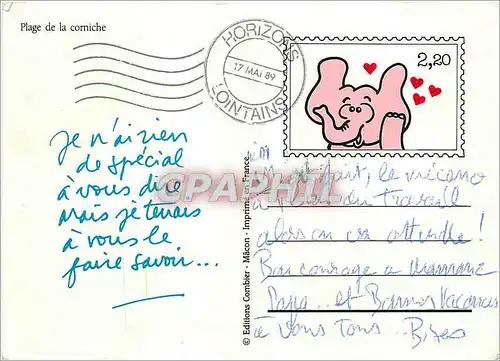 Plage de la corniche
HORIZONS
17 MAI 89
LOINTAINS
2,20
Je n'ai rien
de spécial
à vous dire
mais je tenais
à vous le
faire savoir...
CPAPHIL
© Editions Combier - Mâcon - Imprimé en France
le
travail
alors on
Bon courage a Mamme
Papa .. et Bonnes Vacances
à vous Tous Bises